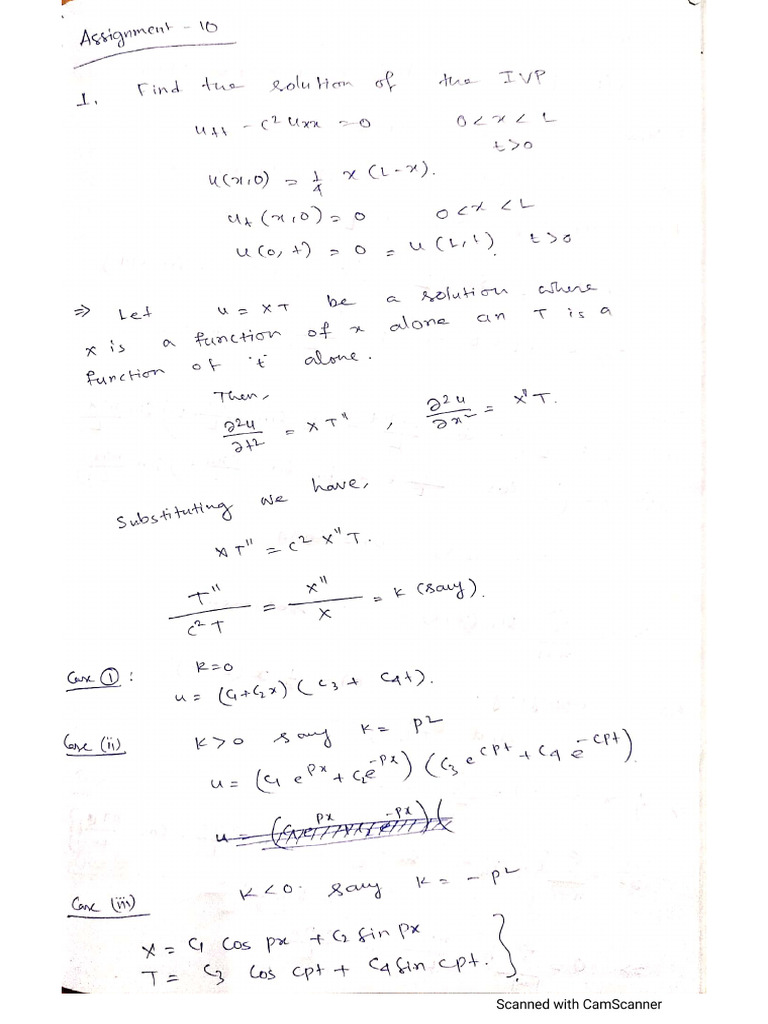 Assignment - 10
1. Find the solution of the IVP
utt - c² uxx = 0 0 < x < L
t > 0
u(x,0) = 1/4 x (L-x).
ut (x,0) = 0 0 < x < L
u(0,t) = 0 = u(L,t). t > 0
⇒ Let u = XT be a solution where
x is a function of x alone an T is a
function of 't' alone.
Then,
∂²u/∂t² = XT'' , ∂²u/∂x² = X''T.
Substituting we have,
XT'' = c² X''T.
T''/c²T = X''/X = k (say).
Case ①: k=0
u = (c1+c2x) (c3 + c4t).
Case (ii) k>0 say k = p²
u = (c1 e^px + c2 e^-px) (c3 e^cpt + c4 e^-cpt)
Case (iii) k<0. say k = -p²
X = c1 cos px + c2 sin px
T = c3 cos cpt + c4 sin cpt.
Scanned with CamScanner